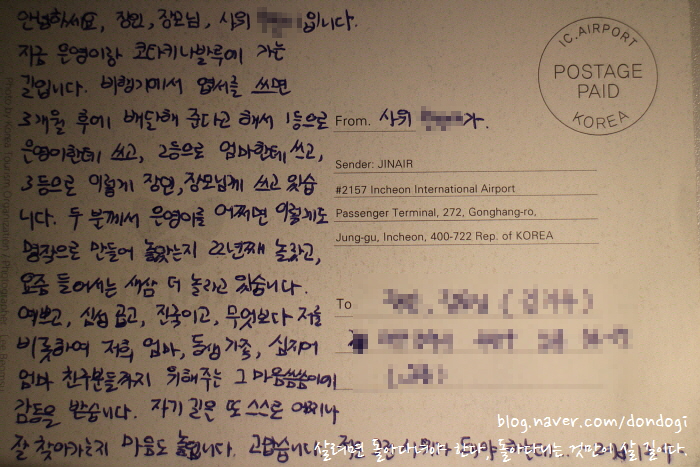 안녕하세요, 장인, 장모님, 사위 입니다.
지금 은영이랑 코타키나발루에 가는
길입니다. 비행기에서 엽서를 쓰면
3개월 후에 배달해 준다고 해서 1등으로
은영이한테 쓰고, 2등으로 엄마한테 쓰고,
3등으로 이렇게 장인, 장모님께 쓰고 있습
니다. 두 분께서 은영이를 어쩌면 이렇게도
명작으로 만들어 놓았는지 22년째 놀랐고,
요즘 들어서는 새삼 더 놀라고 있습니다.
예쁘고, 심성 곱고, 진국이고, 무엇보다 저를
비롯하여 저희 엄마, 동생 가족, 심지어
엄마 친구분들까지 위해주는 그 마음씀씀이에
감동을 받습니다. 자기 길은 또 스스로
잘 찾아가는지 마음도 놓입니다. 고맙습니다.
From. 사위 가.
Sender: JINAIR
#2157 Incheon International Airport
Passenger Terminal, 272, Gonghang-ro,
Jung-gu, Incheon, 400-722 Rep. of KOREA
To
IC. AIRPORT
POSTAGE
PAID
KOREA
Photo by Korea Tourism Organization / Photographer
blog.naver.com/dondogi
살려면 돌아다녀야 한다. 돌아다니는 것만이 살 길이다.